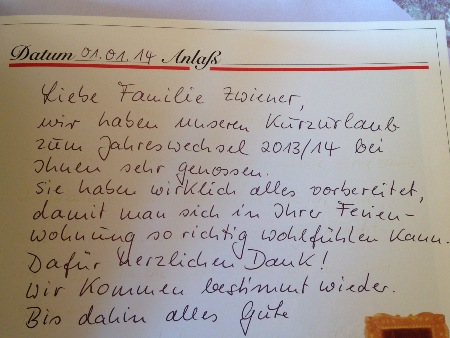 Datum 01.01.14 Anlaß
Liebe Familie Zwiener,
wir haben unseren Kurzurlaub
zum Jahreswechsel 2013/14 bei
Ihnen sehr genossen.
Sie haben wirklich alles vorbereitet,
damit man sich in Ihrer Ferien-
wohnung so richtig wohlfühlen kann.
Dafür herzlichen Dank!
Wir kommen bestimmt wieder.
Bis dahin alles Gute